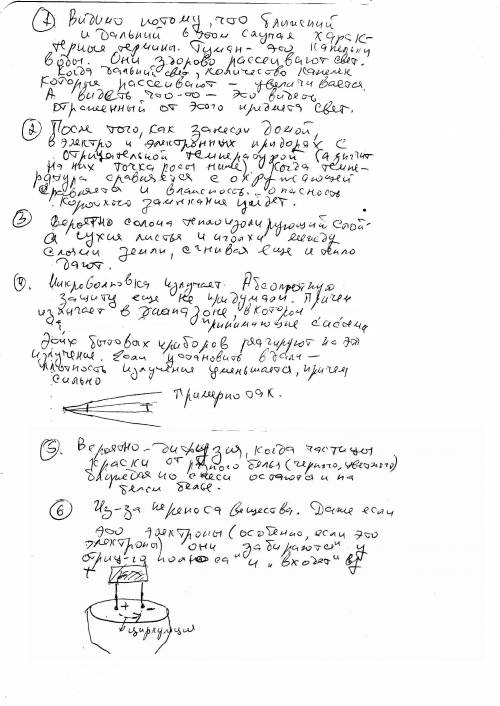 ① Видимо потому, что ближний
и дальний в этом случае харак-
терные термины. Туман - это капельки
воды. Они здорово рассеивают свет.
Когда дальний свет, количество капелек
которые рассеивают - увеличивается.
А видеть что-то - это видеть
отраженный от этого предмета свет.
② После того, как занесли домой,
в электро и электронных приборах с
отрицательной температурой (а значит
на них точка росы ниже). Когда темпе-
ратура сравняется с окружающей
сравняется и влажность. опасность
короткого замыкания уйдет.
③ Вероятно солома теплоизолирующий слой-
а сухие листья и иголки между
слоями земли, сгнивая еще и тепло
дают.
4. Микроволновка излучает. Абсолютную
защиту еще не придумали. Причем
излучает в диапазоне, в котором
принимающие системы
этих бытовых приборов реагируют на это
излучение. Если установить вдали -
плотность излучения уменьшается, причем
сильно
Примерно так.
5. Вероятно - диффузия, когда частицы
краски от разного белья (черного, цветного)
блуждая по смеси остаются и на
белом белье.
⑥ Из-за переноса вещества. Даже если
это электроны (особенно, если это
электроны) они забираются у
отриц-го полюса и „входят" в
+
+ -
циркуляция